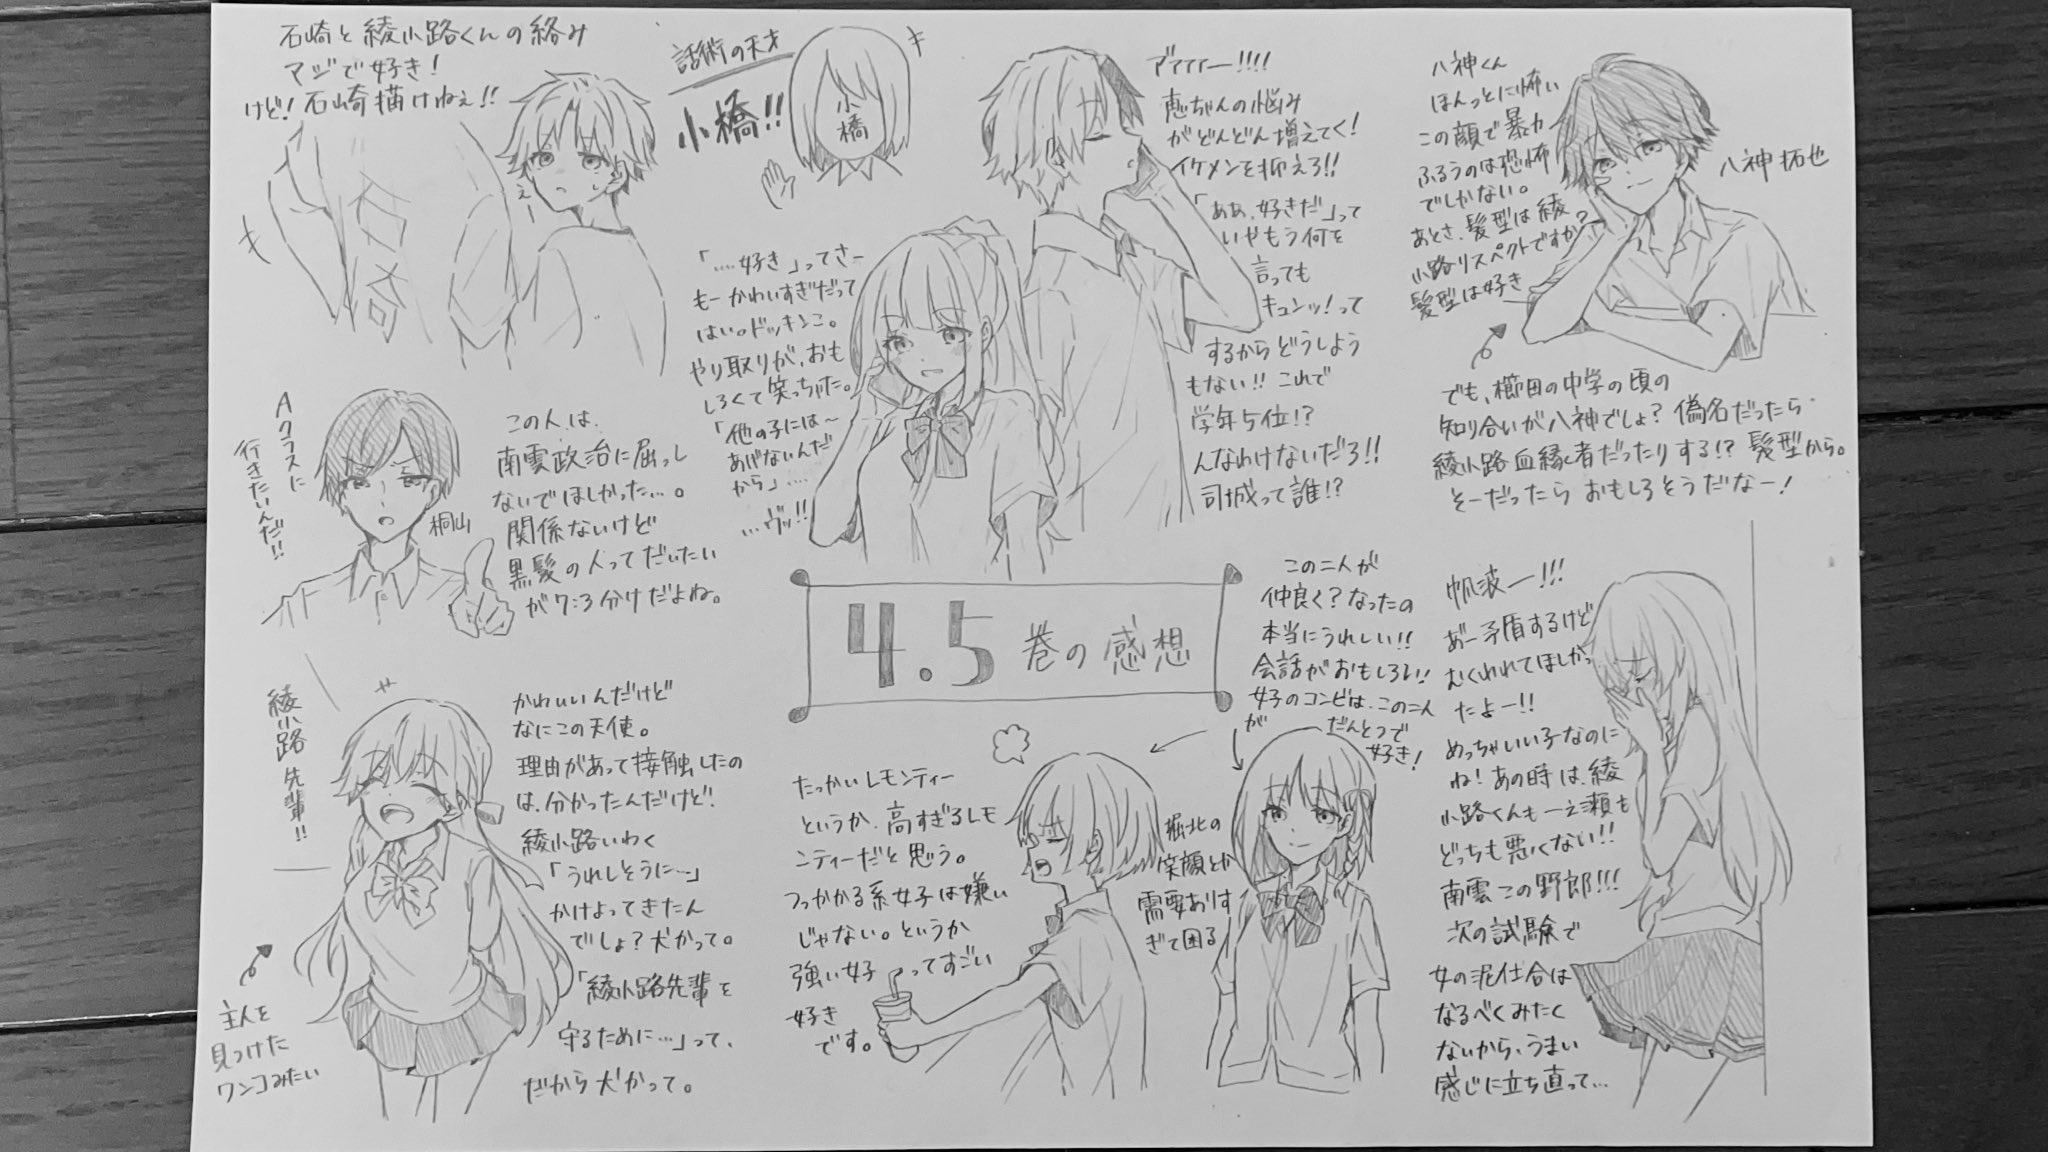 石崎と綾小路くんの絡み
マジで好き!
けど!石崎描けねぇ!!
石崎
え
話術の天才
小橋!!
小橋
「....好き」ってさー
もーかわいすぎだって
はい。ドッキンこ。
やり取りが、おも
しろくて笑っちゃた。
「他の子には〜
あげないんだ
からっ」....
...ヴッ!!
アァァァー!!!!
恵ちゃんの悩み
がどんどん増えてく!
イケメンを抑えろ!!
「ああ、好きだ」って
いやもう何を
言っても
キュンッ!って
するからどうしよう
もない!! これで
学年5位!?
んなわけないだろ!!
司城って誰!?
八神くん
ほんっとに怖い
この顔で暴力
ふるうのは恐怖
でしかない。
あとさ、髪型は綾
小路リスペクトですか?
髪型は好き
八神拓也
でも、櫛田の中学の頃の
知り合いが八神でしょ?偽名だったら
綾小路血縁者だったりする!?髪型から。
そーだったらおもしろそうだなー!
Aクラスに
行きたいんだ!!
桐山
この人は、
南雲政治に屈っし
ないでほしかった...。
関係ないけど
黒髪の人ってだいたい
が7:3分けだよね。
4.5巻の感想
綾小路先輩!!
かわいいんだけど
なにこの天使。
理由があって接触したの
は、分かったんだけど!
綾小路いわく
「うれしそうに...」
かけよってきたん
でしょ?犬かって。
「綾小路先輩を
守るために...」って、
だから犬かって。
主人を
見つけた
ワンコみたい
この二人が
仲良く?なったの
本当にうれしい!!
会話がおもしろい!!
女子のコンビは、この二人
が だんとつで
好き!
たっかいレモンティー
というか、高すぎるレモ
ンティーだと思う。
つっかかる系女子は嫌い
じゃない。というか
強い女子ってすごい
好き
です。
堀北の
笑顔とか
需要ありす
ぎて困る
帆波ー!!!
あー矛盾するけど
むくわれてほしかっ
たよー!!
めっちゃいい子なのに
ね!あの時は、綾
小路くんも一之瀬も
どっちも悪くない!!
南雲この野郎!!!
次の試験で
女の泥仕合は
なるべくみたく
ないから、うまい
感じに立ち直って...